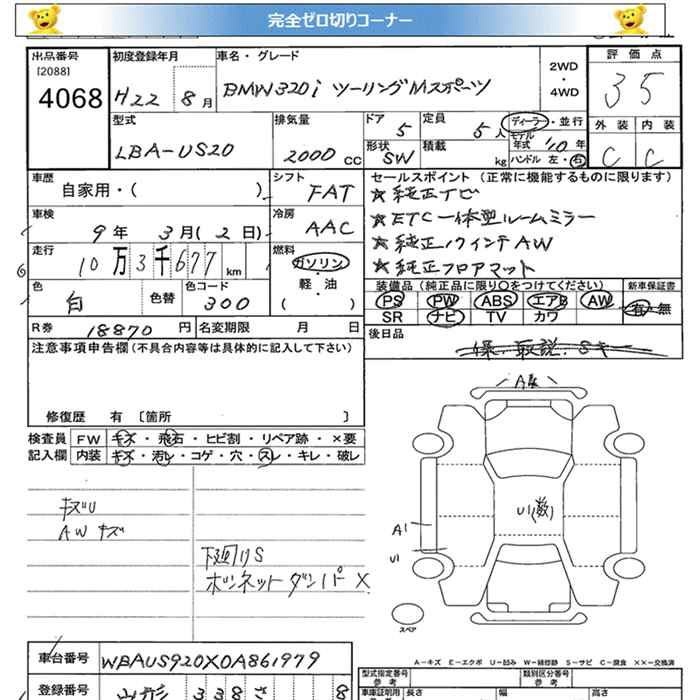 完全ゼロ切りコーナー
出品番号 初度登録年月 車名・グレード 2WD・4WD 評価点
[2088]
4068 H22 8月 BMW320i ツーリングMスポーツ 35
型式 排気量 ドア 5 定員 5人 ディーラー・並行 外装 内装
モデル年式 10年
LBA-US20 2000cc 形状 SW 積載 kg ハンドル 左・右 C C
車歴 シフト セールスポイント (正常に機能するものに限ります)
自家用・( ) FAT ★純正ナビ
車検 冷房 ★ETC一体型ルームミラー
9年3月(2日) AAC ★純正17インチAW
走行 燃料 ★純正フロアマット
10万3千677km ガソリン・軽・油 ( )
色 色替 色コード 装備品 (純正品に限り○をつけてください) 新車保証書
白 300 PS PW ABS エアB AW 有・無
SR ナビ TV カワ
R券 18870円 名変期限 月 日 後日品
注意事項申告欄 (不具合内容等は具体的に記入して下さい)
修復歴 有 〔箇所 〕
検査員 FW キズ・飛石・ヒビ割・リペア跡・×要
記入欄 内装 キズ・汚レ・コゲ・穴・スレ・キレ・破レ
キズU
AWキズ
下廻りS
ボンネットダンパーX
U1(数)
A1
U1
スペア
A-キズ E-エクボ U-凹み W-補修跡 S-サビ C-腐食 XX-交換済
車台番号 WBAUS920X0A861979
型式指定番号 参考 類別区分番号 参考
登録番号 山形 車庫証明用 参考 長さ 幅 高さ